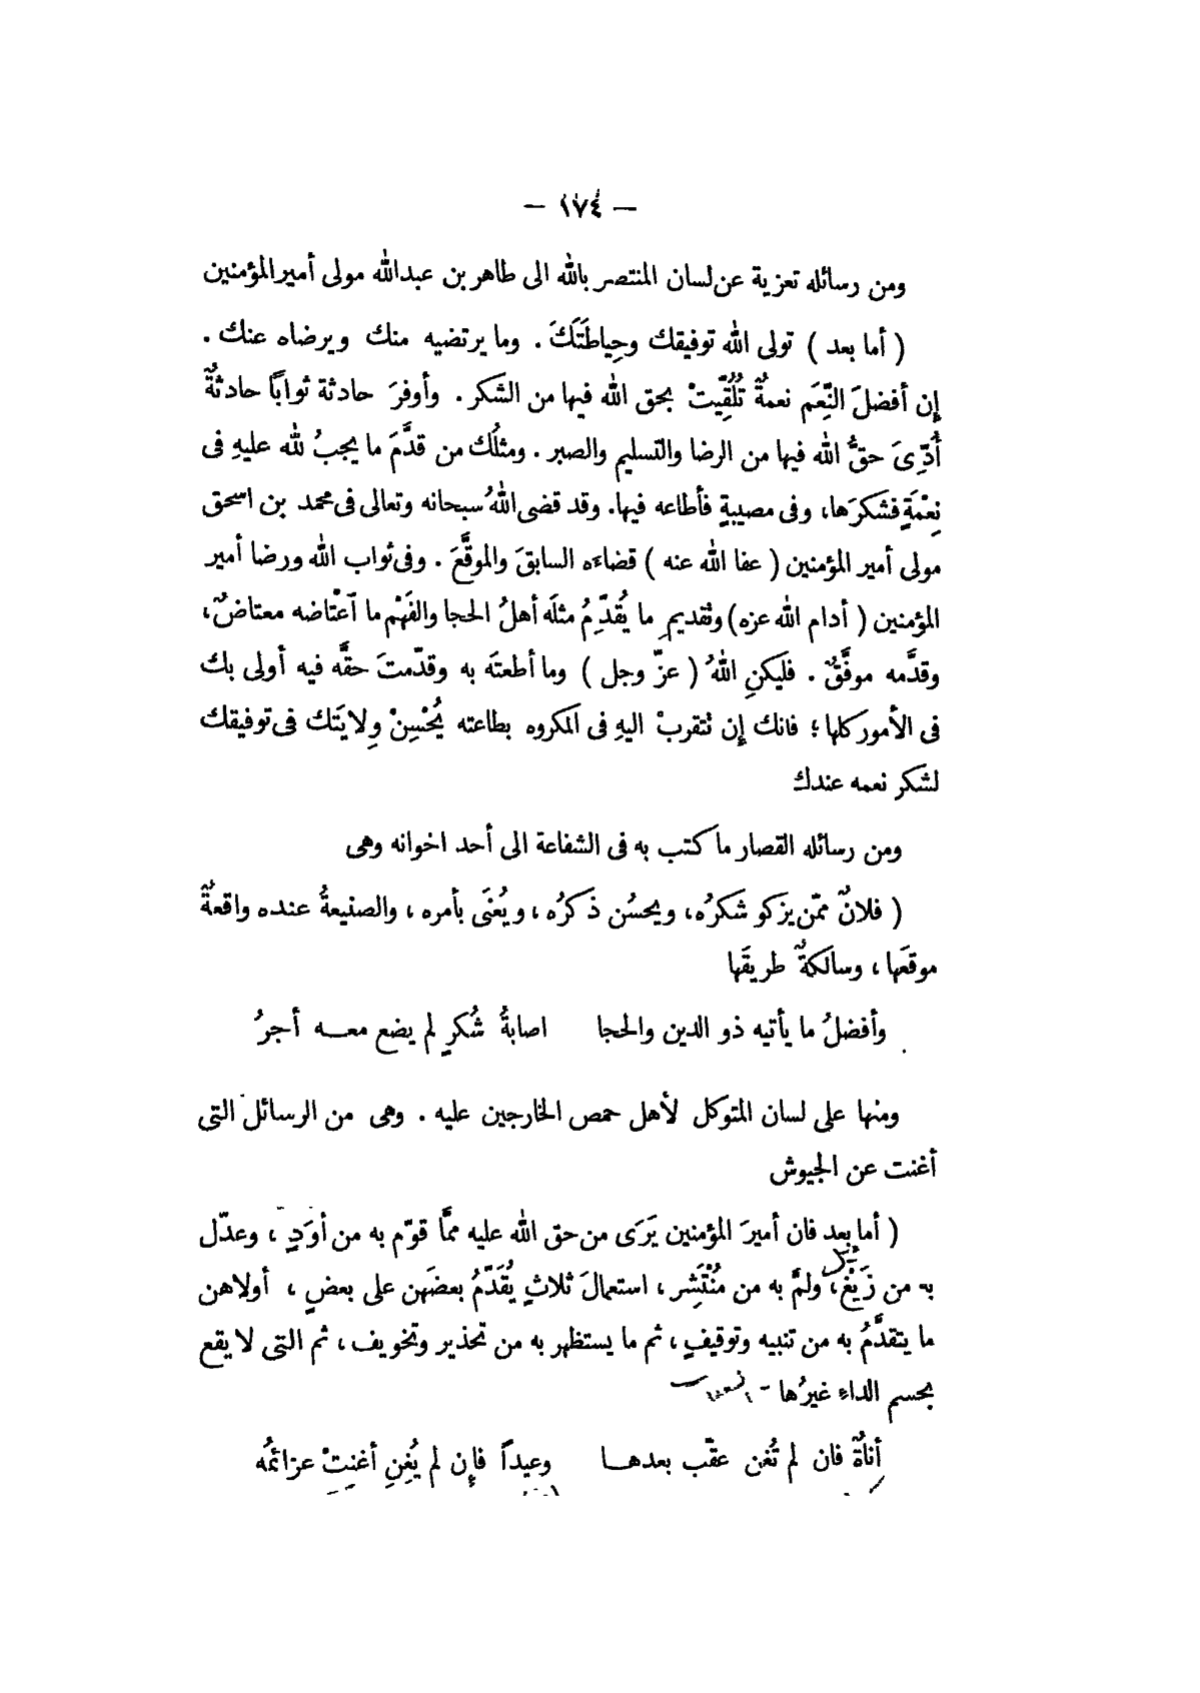 — ١٧٤ —
ومن رسائله تعزية عن لسان المنتصر بالله الى طاهر بن عبدالله مولى أمير المؤمنين
( أما بعد ) تولى الله توفيقك وحِياطَتَكَ . وما يرتضيه منك ويرضاه عنك .
إن أفضلَ النِّعَم نعمةٌ تُلُقِّيتْ بحق الله فيها من الشكر . وأوفرَ حادثة ثوابًا حادثةٌ
أُدِّىَ حقُّ الله فيها من الرضا والتسليم والصبر . ومثلُك من قدَّمَ ما يجبُ لله عليهِ فى
نِعْمَةٍ فشكَرَها، وفى مصيبةٍ فأطاعه فيها. وقد قضى اللهُ سبحانه وتعالى فى محمد بن اسحق
مولى أمير المؤمنين ( عفا الله عنه ) قضاءَه السابقَ والموقَّعَ . وفى ثواب الله ورضا أمير
المؤمنين ( أدام الله عزه) وتقديمِ ما يُقدِّمُ مثلَه أهلُ الحجا والفَهْم ما ٱعْتاضه معتاضٌ،
وقدَّمه موفَّقٌ . فليكنِ اللهُ ( عزّ وجل ) وما أطعتَه به وقدّمتَ حقَّه فيه أولى بك
فى الأمور كلها ؛ فانك إن تتقربْ اليهِ فى المكروه بطاعته يُحْسِنْ وِلايَتَك فى توفيقك
لشكر نعمه عندك
ومن رسائله القصار ما كتب به فى الشفاعة الى أحد اخوانه وهى
( فلانٌ ممّن يزكو شكرُه، ويحسُن ذكرُه ، ويُعْنَى بأمره ، والصنيعةُ عنده واقعةٌ
موقعَها ، وسالكةٌ طريقَها
وأفضلُ ما يأتيه ذو الدين والحجا اصابةُ شُكرٍ لم يضع معـــه أجرُ
ومنها على لسان المتوكل لأهل حمص الخارجين عليه . وهى من الرسائل التى
أغنت عن الجيوش
( أما بعد فان أميرَ المؤمنين يَرَى من حق الله عليه ممَّا قوّم به من أوَدٍ ، وعدّل
به من زَيْغٍ، ولمَّ به من مُنْتَشِر ، استعمالَ ثلاثٍ يُقَدّمُ بعضَهن على بعضٍ ، أولاهن
ما يتقدَّمُ به من تنبيه وتوقيفٍ ، ثم ما يستظهر به من تحذير وتخويف ، ثم التى لا يقع
بحسم الداءِ غيرُها -
أناةٌ فان لم تُغن عقّب بعدهـــا وعيداً فإن لم يُغنِ أغنتْ عزائمُه